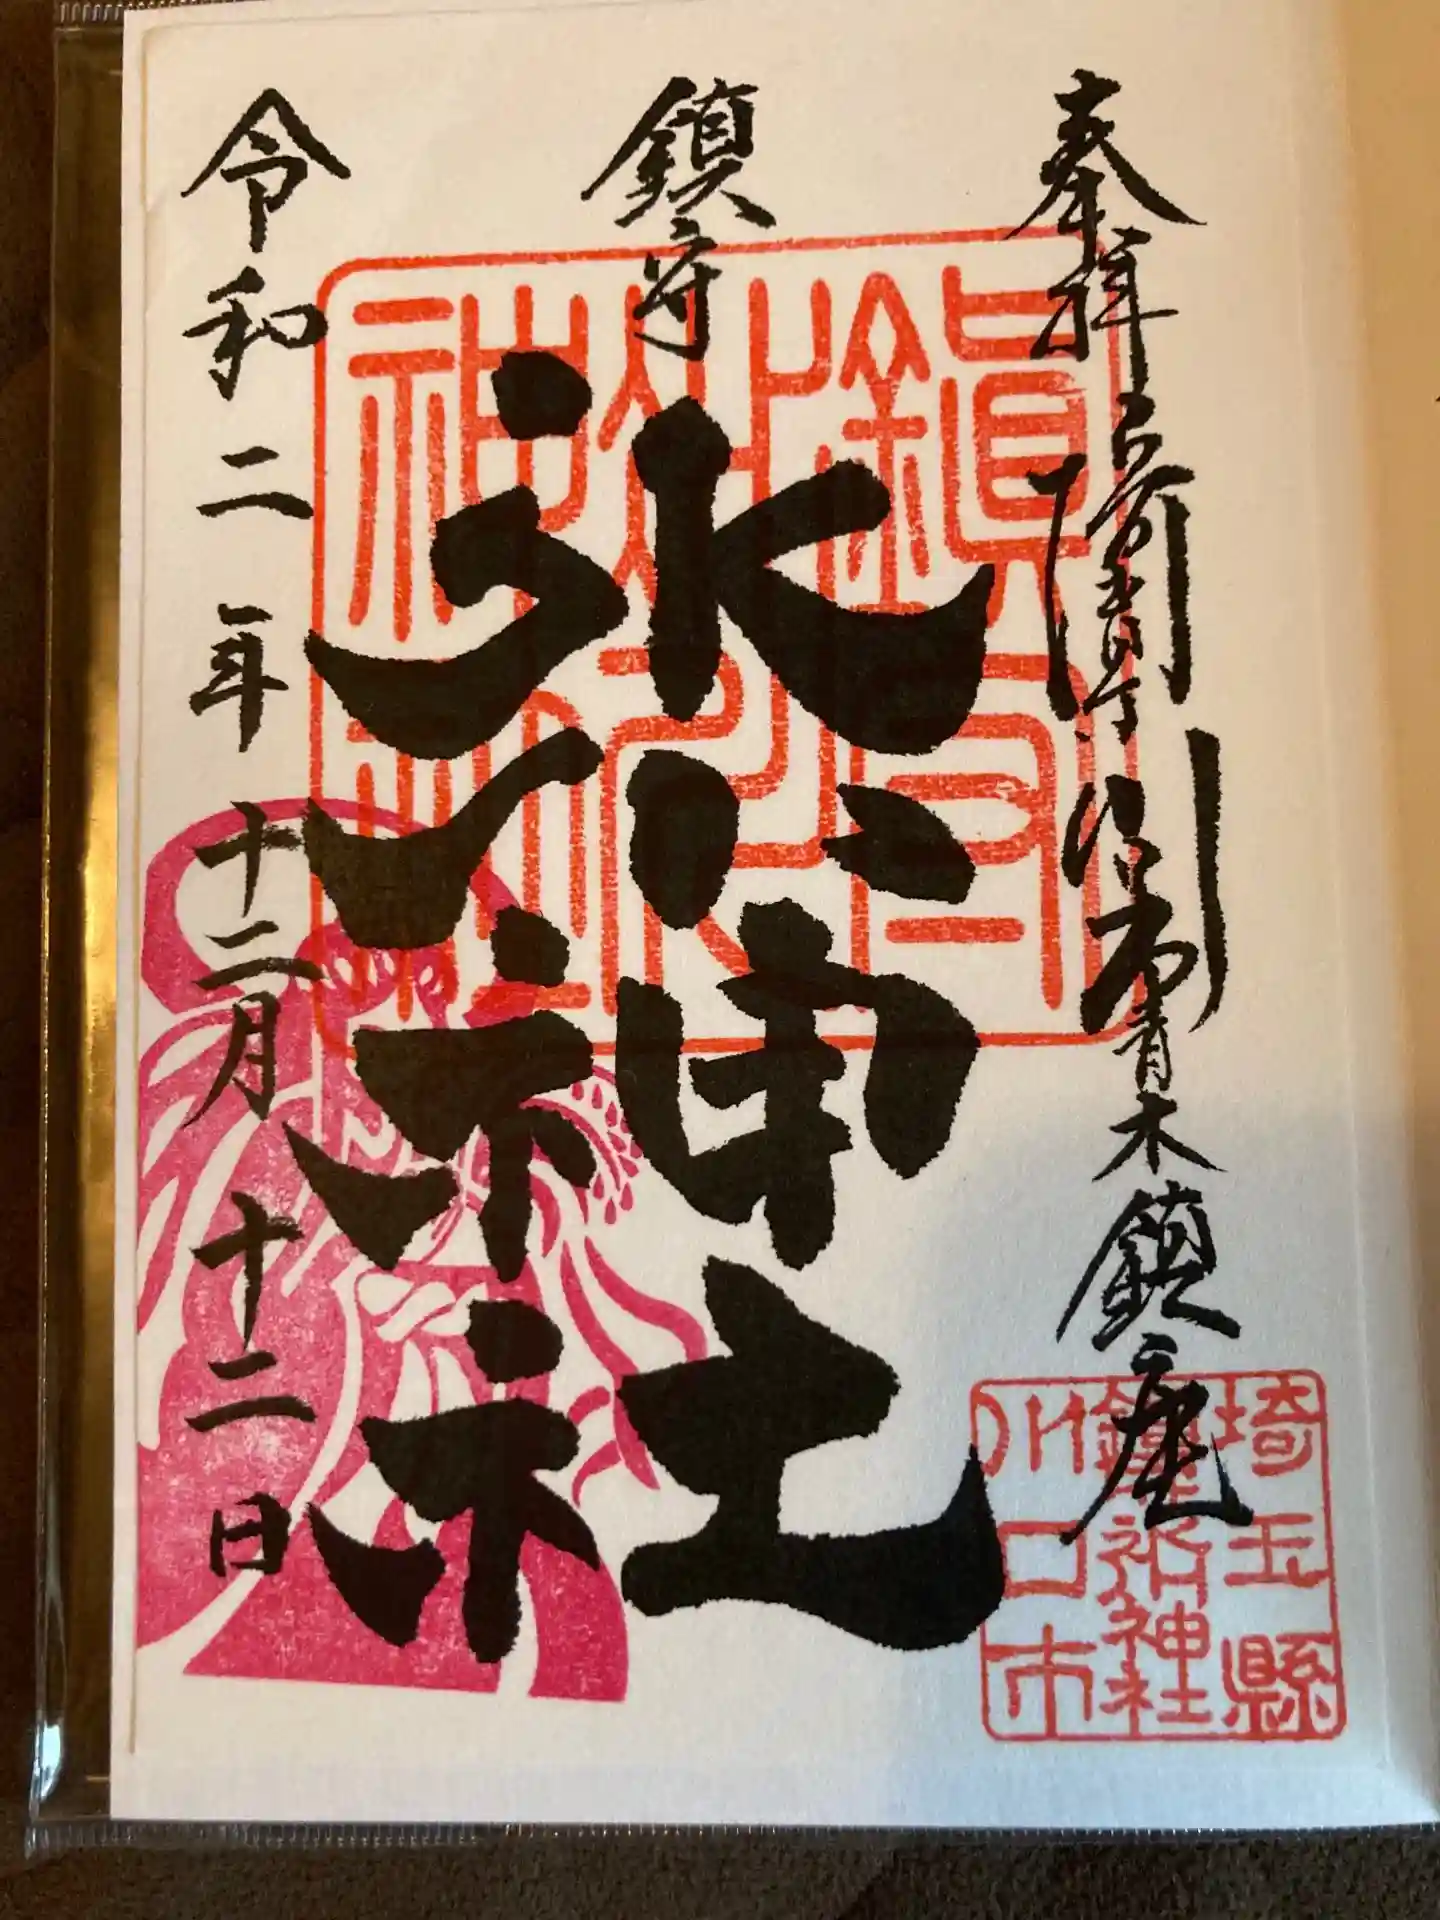 奉拝
川口市青木鎮座
鎮守
氷川神社
令和二年十二月十二日
鎮守氷川神社
埼玉縣
鎮守氷川神社
川口市